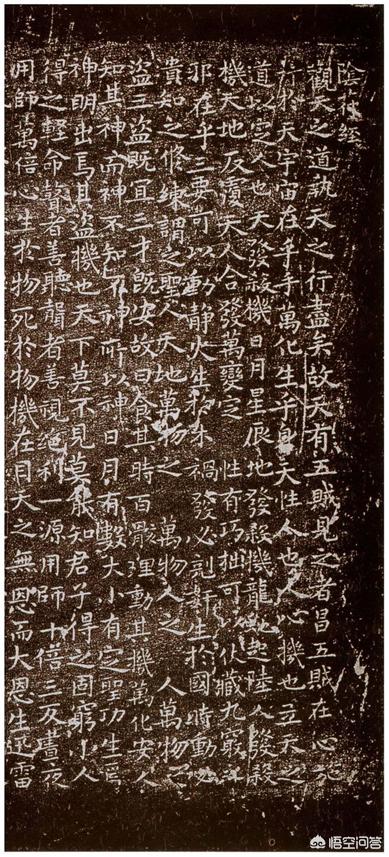 陰符經
觀天之道執天之行盡矣故天有五賊見之者昌五賊在心施
行於天宇宙在乎手萬化生乎身天性人也人心機也立天之
道以定人也天發殺機日月星辰地發殺機龍虵起陸人發殺
機天地反覆天人合發萬變定 性有巧拙可以伏藏九竅之
邪在乎三要可以動靜火生於木 禍發必剋姧生於國時動必
潰知之修練謂之聖人天地萬物之 萬物人之 人萬物之
盜三盜既宜三才既安故曰食其時百骸理動其機萬化安人
知其神而神不知不神所以神日月有數大小有定聖功生焉
神明出焉其盜機也天下莫不見莫能知君子得之固窮小人
得之輕命瞽者善聽聾者善視絕利一源用師十倍三反晝夜
用師萬倍心生於物死於物機在目天之無恩而大恩生迅雷
悟空问答